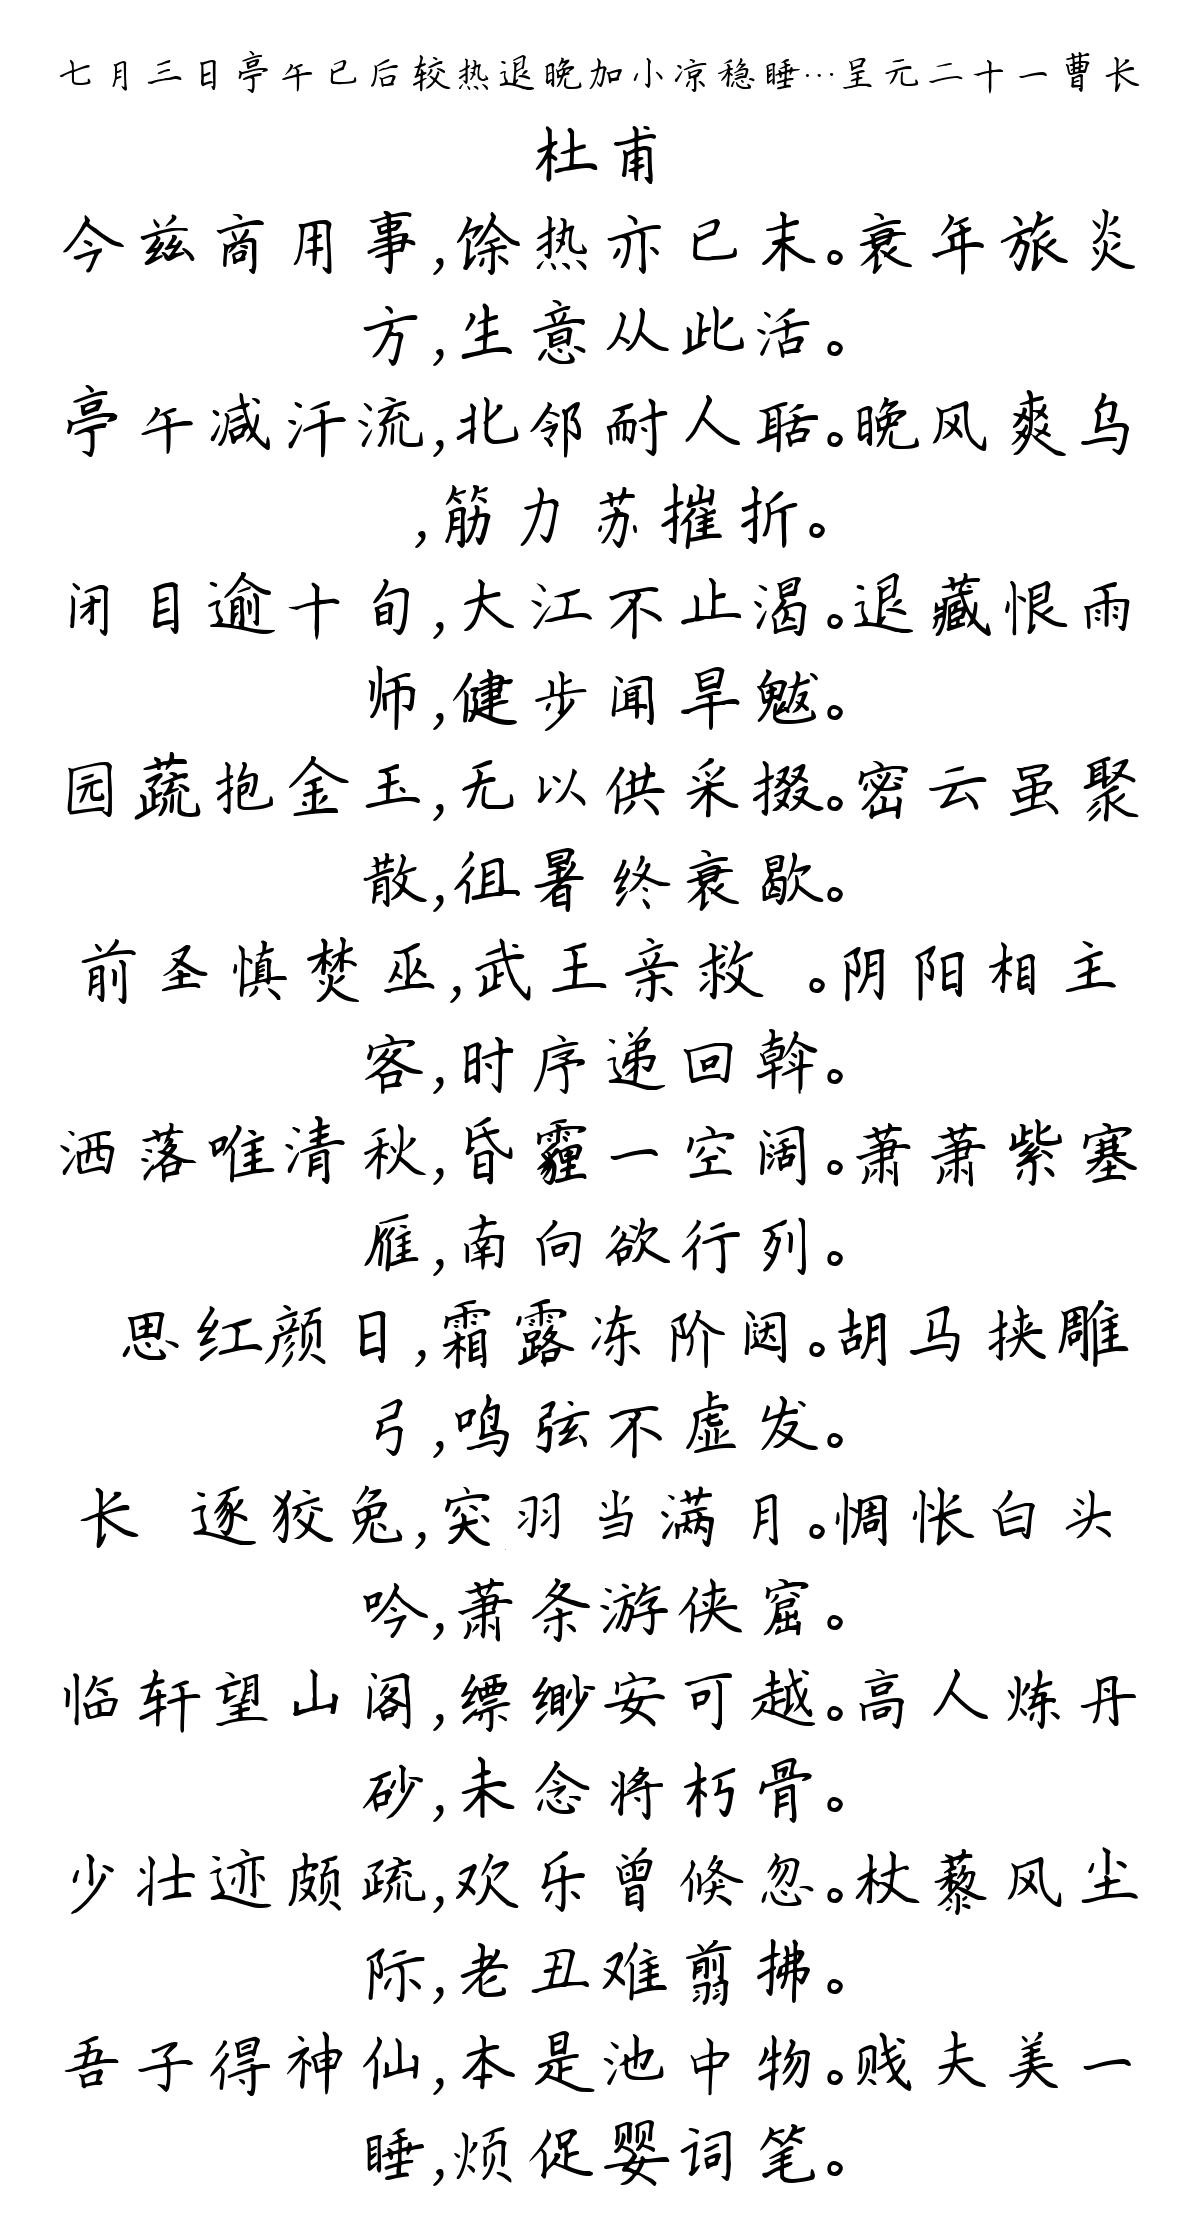 七月三日亭午已后较热退晚加小凉稳睡…呈元二十一曹长
杜甫
今兹商用事,馀热亦已末。衰年旅炎
方,生意从此活。
亭午减汗流,北邻耐人聒。晚风爽乌
,筋力苏摧折。
闭目逾十旬,大江不止渴。退藏恨雨
师,健步闻旱魃。
园蔬抱金玉,无以供采掇。密云虽聚
散,徂暑终衰歇。
前圣慎焚巫,武王亲救 。阴阳相主
客,时序递回斡。
洒落唯清秋,昏霾一空阔。萧萧紫塞
雁,南向欲行列。
思红颜日,霜露冻阶闼。胡马挟雕
弓,鸣弦不虚发。
长 逐狡兔,突羽当满月。惆怅白头
吟,萧条游侠窟。
临轩望山阁,缥缈安可越。高人炼丹
砂,未念将朽骨。
少壮迹颇疏,欢乐曾倏忽。杖藜风尘
际,老丑难翦拂。
吾子得神仙,本是池中物。贱夫美一
睡,烦促婴词笔。